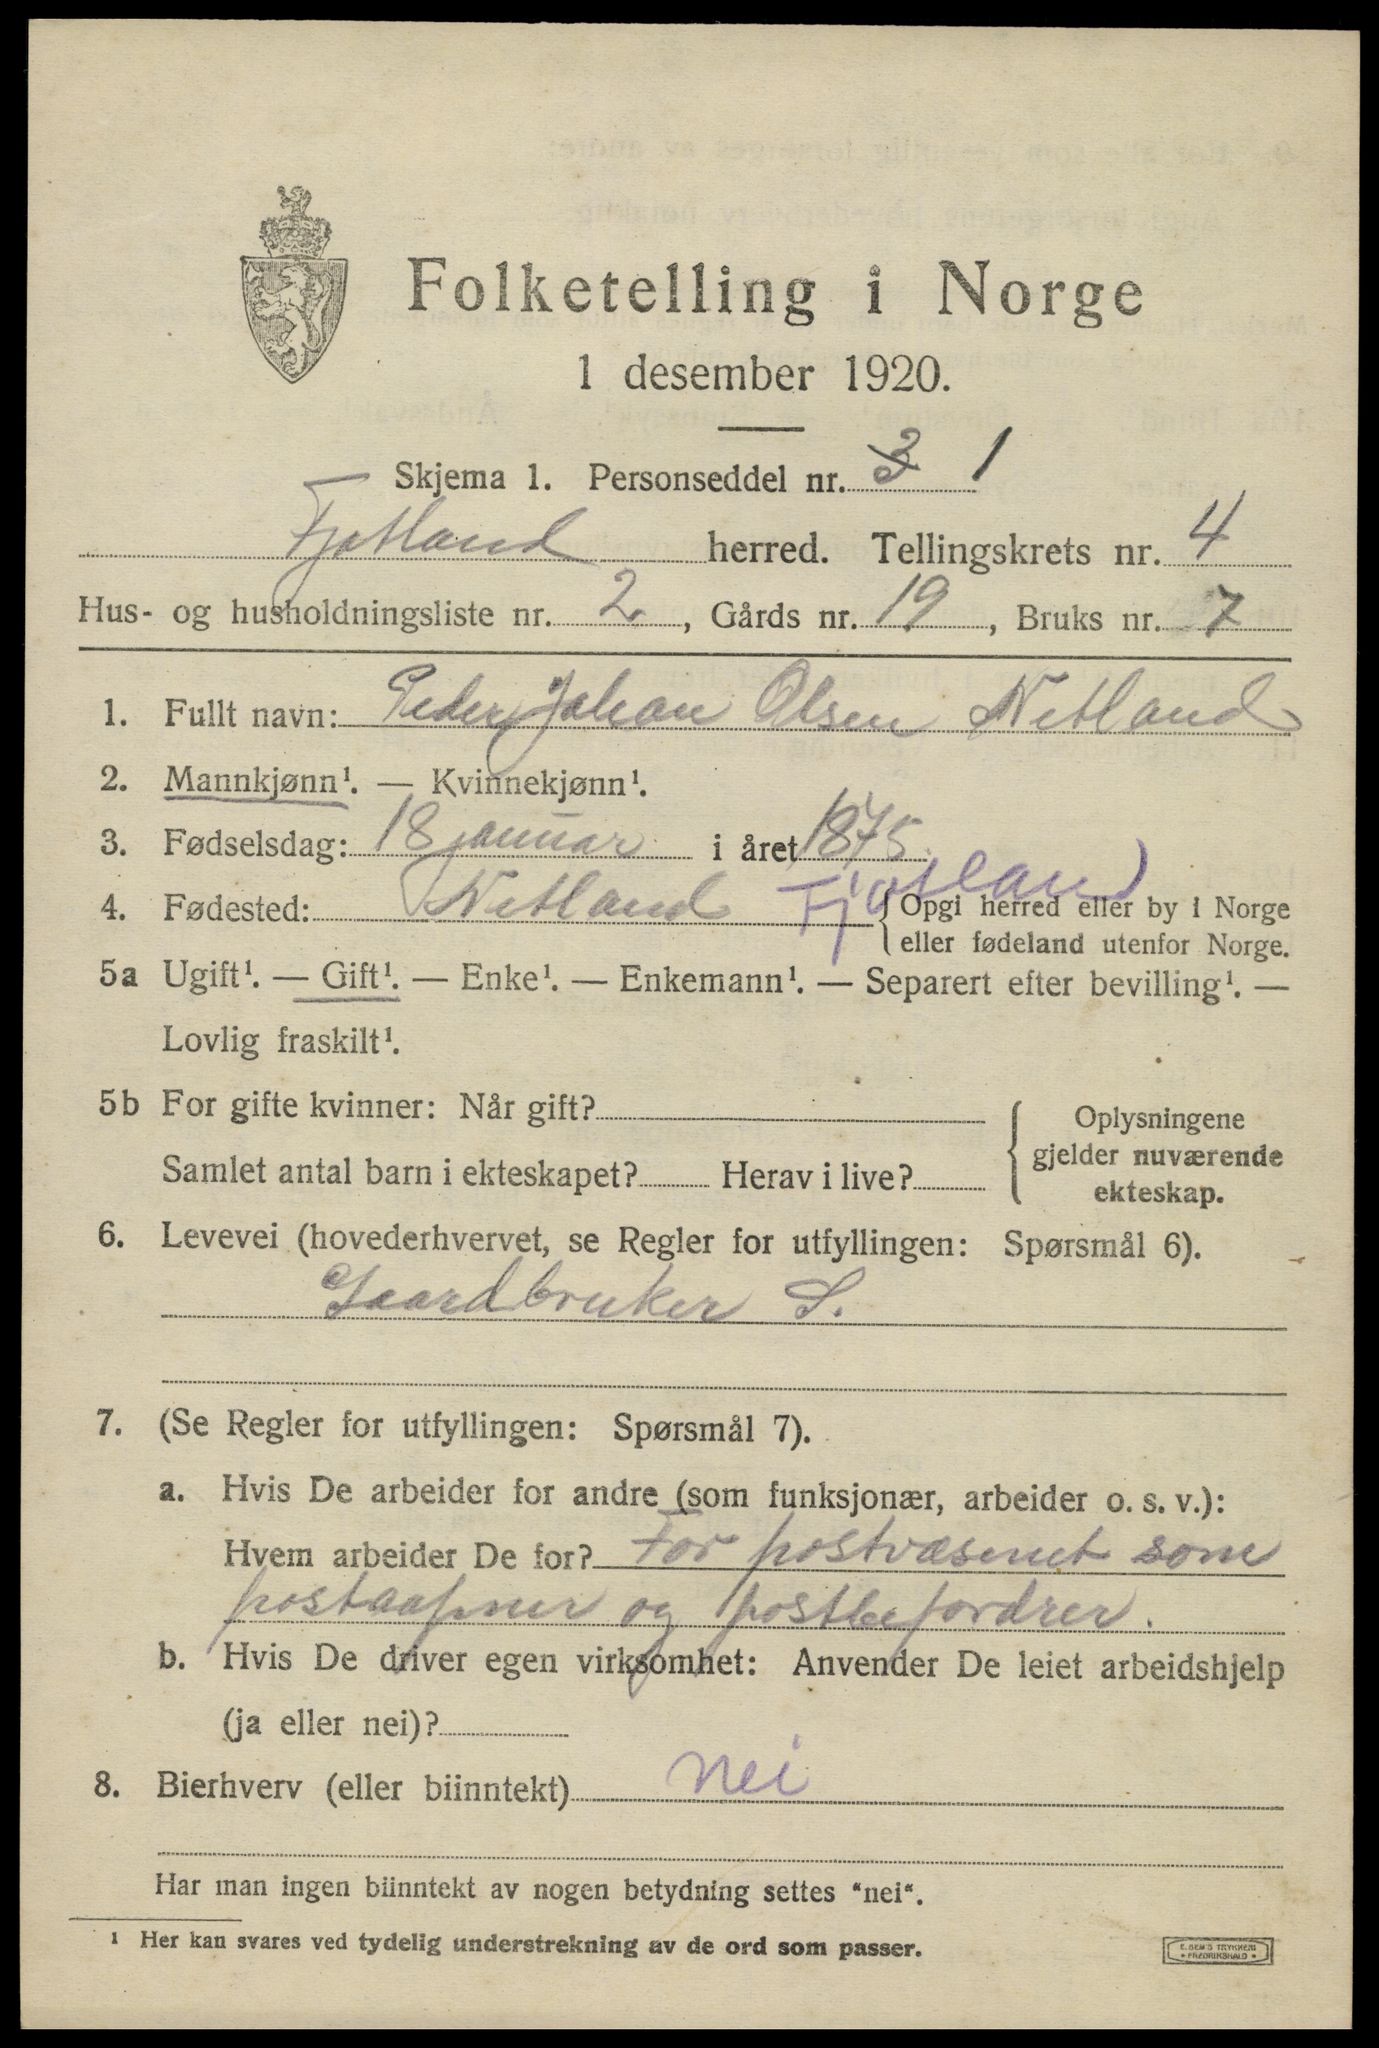 Folketelling i Norge
1 desember 1920.
Skjema 1. Personseddel nr. 3 1
Fjotland herred. Tellingskrets nr. 4
Hus- og husholdningsliste nr. 2, Gårds nr. 19, Bruks nr. 7
1. Fullt navn: Peder Johan Olsen Netland
2. Mannkjønn¹. — Kvinnekjønn¹.
3. Fødselsdag: 18 januar i året 1875.
4. Fødested: Netland Fjotland { Opgi herred eller by i Norge
eller fødeland utenfor Norge.
5a Ugift¹. — Gift¹. — Enke¹. — Enkemann¹. — Separert efter bevilling¹. —
Lovlig fraskilt¹.
5b For gifte kvinner: Når gift?
Samlet antal barn i ekteskapet? Herav i live?
Oplysningene
gjelder nuværende
ekteskap.
6. Levevei (hovederhvervet, se Regler for utfyllingen: Spørsmål 6).
Gaardbruker S.
7. (Se Regler for utfyllingen: Spørsmål 7).
a. Hvis De arbeider for andre (som funksjonær, arbeider o. s. v.):
Hvem arbeider De for? For postvæsenet som
postaapner og postbefordrer.
b. Hvis De driver egen virksomhet: Anvender De leiet arbeidshjelp
(ja eller nei)?
8. Bierhverv (eller biinntekt) nei
Har man ingen biinntekt av nogen betydning settes "nei".
¹ Her kan svares ved tydelig understrekning av de ord som passer.
E. SEM'S TRYKKERI
• FREDRIKSHALD •